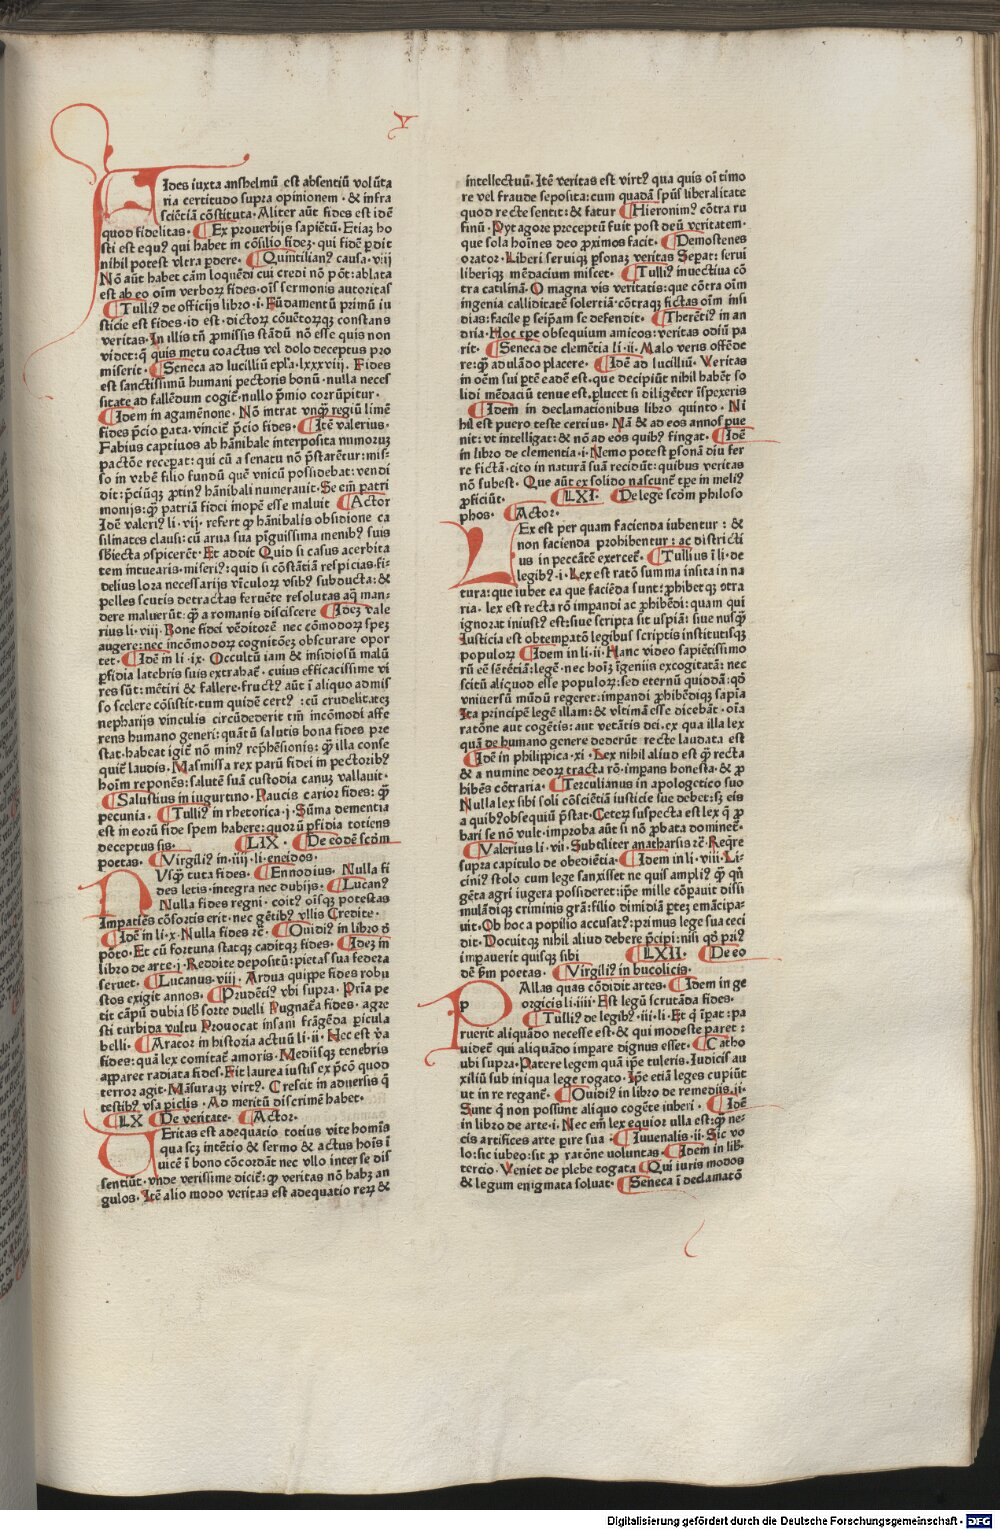 V
Fides iuxta anshelmū est absentiū volūta
ria certitudo supra opinionem · & infra
sciētiā cōstituta · Aliter aūt fides est idē
quod fidelitas · ¶ Ex prouerbijs sapiētū · Etiaꝫ ho
sti est equꝰ qui habet in cōsilio fideꝫ · qui fidē ꝑdit
nihil potest vltra ꝑdere · ¶ Quintilianꝰ causa · viij
Nō aūt habet cām loquēdi cui credi nō pōt : ablata
est ab eo oīm verboꝝ fides · oīs sermonis autoritas
¶ Tulliꝰ de officijs libro · i · Fūdamentū primū iu
sticie est fides · id est · dictoꝝ cōuētoꝝqꝫ constans
veritas · In illis tn̄ ꝓmissis stādū nō esse quis non
videt : q̄ quis metu coactus vel dolo deceptus pro
miserit · ¶ Seneca ad lucilliū epl̄a · lxxxviij · Fides
est sanctissimū humani pectoris bonū · nulla neces
sitate ad fallēdum cogit̄ · nullo p̄mio corrūpitur ·
¶ Idem in agamēnone · Nō intrat vnqꝫ regiū limē
fides p̄cio ꝑata · vincit̄ p̄cio fides · ¶ Itē valerius ·
Fabius captiuos ab hānibale interposita numoꝝ
pactōe receꝑat : qui cū a senatu nō p̄starētur : mis-
so in vrbē filio fundū quē vnicū possidebat : vendi
dit : p̄ciūqꝫ ꝓtinꝰ hānibali numerauit · Se em̄ patri
monijs : ꝙ̄ patriā fidei inopē esse maluit ¶ Actor
Idē valeriꝰ li · vij · refert ꝙ hānibalis obsidione ca
silinates clausi : cū arua sua pīguissima menibꝰ suis
sb̄iecta ꝯspicerēt · Et addit Quid si casus acerbita
tem intuearis · miseriꝰ : quid si cōstātiā respicias · fi-
delius lora necessarijs vīculoꝝ vsibꝰ subducta : &
pelles scutis detractas feruēte resolutas aq̄ man-
dere maluerūt : ꝙ̄ a romanis disciscere ¶ Ideꝫ vale
rius li · viij · Bone fidei vēditorē nec cōmodoꝝ speꝫ
augere : nec incōmodoꝝ cognitōeꝫ obscurare opor
tet · ¶ Idē in li · ix · Occultū iam & insidiosū malū
ꝑfidia latebris suis extrahat̄ · cuius efficacissime vi
res sūt : mētiri & fallere · fructꝰ aūt ī aliquo admis
so scelere cōsistit · tum quidē certꝰ : cū crudelitateꝫ
nepharijs vinculis circūdederit tm̄ incōmodi affe
rens humano generi : quātū salutis bona fides pre
stat · habeat igit̄ nō minꝰ repr̄hēsionis : ꝙ̄ illa conse
quit̄ laudis · Masmissa rex parū fidei in pectoribꝰ
hoīm reponēs : salutē suā custodia canuꝫ vallauit ·
¶ Salustius in iugurtino · Paucis carior fides : ꝙ̄
pecunia · ¶ Tulliꝰ in rhetorica · j · Sūma dementia
est in eorū fide spem habere : quorū ꝑfidia totiens
deceptus sis · ¶ LIX · ¶ De eodē scd̄m
poetas · ¶ Virgiliꝰ in · iiij · li · eneidos ·
Nusqꝫ tuta fides · ¶ Ennodius · Nulla fi
des letis · integra nec dubijs · ¶ Lucanꝰ
Nulla fides regni · coitꝰ oīsqꝫ potestas
Impatiēs cōsortis erit · nec gētibꝰ vllis Credite ·
¶ Idē in li · x · Nulla fides ꝛc̄ · ¶ Ouidiꝰ in libro d̄
pōto · Et cū fortuna statqꝫ caditqꝫ fides · ¶ Ideꝫ in
libro de arte · j · Reddite depositū : pietas sua federa
seruet · ¶ Lucanus · viij · Ardua quippe fides robu
stos exigit annos · ¶ Prudētiꝰ vbi supra · Pria pe
tit cāpū dubia sb̄ sorte duelli Pugnat̄a fides · agre
sti turbida vultu Prouocat insani frāgēda ꝑicula
belli · ¶ Arator in historia actuū li · ii · Nec est v̄a
fides : quā lex comitat̄ amoris · Mediisqꝫ tenebris
apparet radiata fides · Fit laurea iustis ex p̄cō quod
terror agit · Māsuraqꝫ virtꝰ · Crescit in aduersis q̄
testibꝰ vsa ꝑiclis · Ad meritū discrimē habet ·
¶ LX ¶ De veritate · ¶ Actor ·
Veritas est adequatio totius vite homīs
qua scꝫ intētio & sermo & actus hoīs ī
uicē ī bono cōcordāt nec vllo inter se dis
sentiūt · vnde verissime dicit̄ : ꝙ veritas nō habꝫ an
gulos · Itē alio modo veritas est adequatio reꝝ &
intellectuū · Itē veritas est virtꝰ qua quis oī timo
re vel fraude seposita : cum quadā sp̄ūs liberalitate
quod recte sentit : & fatur ¶ Hieronimꝰ cōtra ru
finū · Pytagore preceptū fuit post deū veritatem ·
que sola hoīnes deo ꝓximos facit · ¶ Demostenes
orator · Liberi seruiqꝫ ꝑsonaꝫ veritas Seꝑat : serui
liberiqꝫ mēdacium miscet · ¶ Tulliꝰ inuectiua cō
tra catilinā · O magna vis veritatis : que cōtra oīm
ingenia calliditatē solertiā · cōtraqꝫ fictas oīm insi
dias : facile ꝑ seip̄am se defendit · ¶ Therētiꝰ in an
dria · Hoc tꝑe obsequium amicos : veritas odiū pa
rit · ¶ Seneca de clemētia li · ii · Malo veris offēde
re : ꝙ̄ adulādo placere · ¶ Idē ad lucilliū · Veritas
in oēm sui ꝑtē eadē est · que decipiūt nihil habēt so
lidi mēdaciū tenue est · ꝑlucet si diligēter īspexeris
¶ Idem in declamationibus libro quinto · Ni
hil est puero teste certius · Nā & ad eos annos ꝑue
nit : vt intelligat : & nō ad eos quibꝰ fingat · ¶ Idē
in libro de clementia · i · Nemo potest ꝑsonā diu fer
re fictā · cito in naturā suā recidūt : quibus veritas
nō subest · Que aūt ex solido nascunt̄ tꝑe in meliꝰ
ꝓficiūt · ¶ LXI · ¶ De lege scd̄m philoso
phos · ¶ Actor ·
Lex est per quam facienda iubentur : &
non facienda prohibentur : ac districti
us in peccātē exercet̄ · ¶ Tullius ī li · de
legibꝰ · i · Lex est ratō summa insita in na
tura : que iubet ea que faciēda sunt : ꝓhibetqꝫ ꝯtra
ria · lex est recta rō impandi ac ꝓhibēdi : quam qui
ignorat iniustꝰ est : siue scripta sit uspiā : siue nusqꝫ
Iusticia est obtempatō legibus scriptis institutisqꝫ
populoꝝ ¶ Idem in li · ii · Hanc video sapiētissimo
rū eē sētētiā : legē · nec hoīꝫ īgeniis excogitatā : nec
scitū aliquod esse populoꝝ : sed eternū quiddā : qō
vniuersū mūdū regeret : impandi ꝓhibēdiqꝫ sapīa
Ita principē legē illam : & vltimā esse dicebāt · oīa
ratōne aut cogētis : aut vetātis dei · ex qua illa lex
quā de humano genere dederūt recte laudata est
¶ Idē in philippica · xi · Lex nihil aliud est ꝙ̄ recta
& a numine deoꝝ tracta rō · impans honesta · & ꝓ
hibēs cōtraria · ¶ Terculianus in apologetico suo
Nulla lex sibi soli cōsciētiā iusticie sue debet : sꝫ eis
a quibꝰ obsequiū p̄stat · Ceteꝝ suspecta est lex q̄ ꝓ
bari se nō vult · improba aūt si nō ꝓbata dominet̄ ·
¶ Valerius li · vii · Subtiliter anatharsis ꝛc̄ · Req̄re
supra capitulo de obediētia · ¶ Idem in li · viii · Li-
ciniꝰ stolo cum lege sanxisset ne quis ampliꝰ ꝙ̄ qn̄
gēta agri iugera possideret : ip̄e mille cōꝑauit dissi
mulādiqꝫ criminis grā : filio dimidiā ꝑtēꝫ emācipa-
uit · Ob hoc a popilio accusatꝰ : primus lege sua ceci
dit · Docuitqꝫ nihil aliud debere p̄cipi : nisi qd̄ priꝰ
imperauerit quisque sibi ¶ LXII · ¶ De eo
dē sm̄ poetas · ¶ Virgiliꝰ in bucolicis ·
Pallas quas cōdidit artes · ¶ Idem in ge
p orgicis li · iiii · Est legū scrutāda fides ·
¶ Tulliꝰ de legibꝰ · iii · li · Et q̄ īꝑat : pa
ruerit aliquādo necesse est · & qui modeste paret :
uidet̄ qui aliquādo imꝑare dignus esset · ¶ Catho
ubi supra · Patere legem quā ip̄e tuleris · Iudicis au
xiliū sub iniqua lege rogato · Ip̄e etiā leges cupiūt
ut in re regant̄ · ¶ Ouidiꝰ in libro de remediis · ii ·
Sunt q̄ non possunt aliquo cogēte iuberi · ¶ Idē
in libro de arte · i · Nec em̄ lex equior ulla est : ꝙ̄ ne-
cis artifices arte ꝑire sua · ¶ Iuuenalis · ii · Sic vo
lo : sic iubeo : sit ꝓ ratōne voluntas · ¶ Idem in lib̄ ·
tercio · Veniet de plebe togata ¶ Qui iuris modos
& legum enigmata soluat · ¶ Seneca ī declamatō
Digitalisierung gefördert durch die Deutsche Forschungsgemeinschaft - DFG